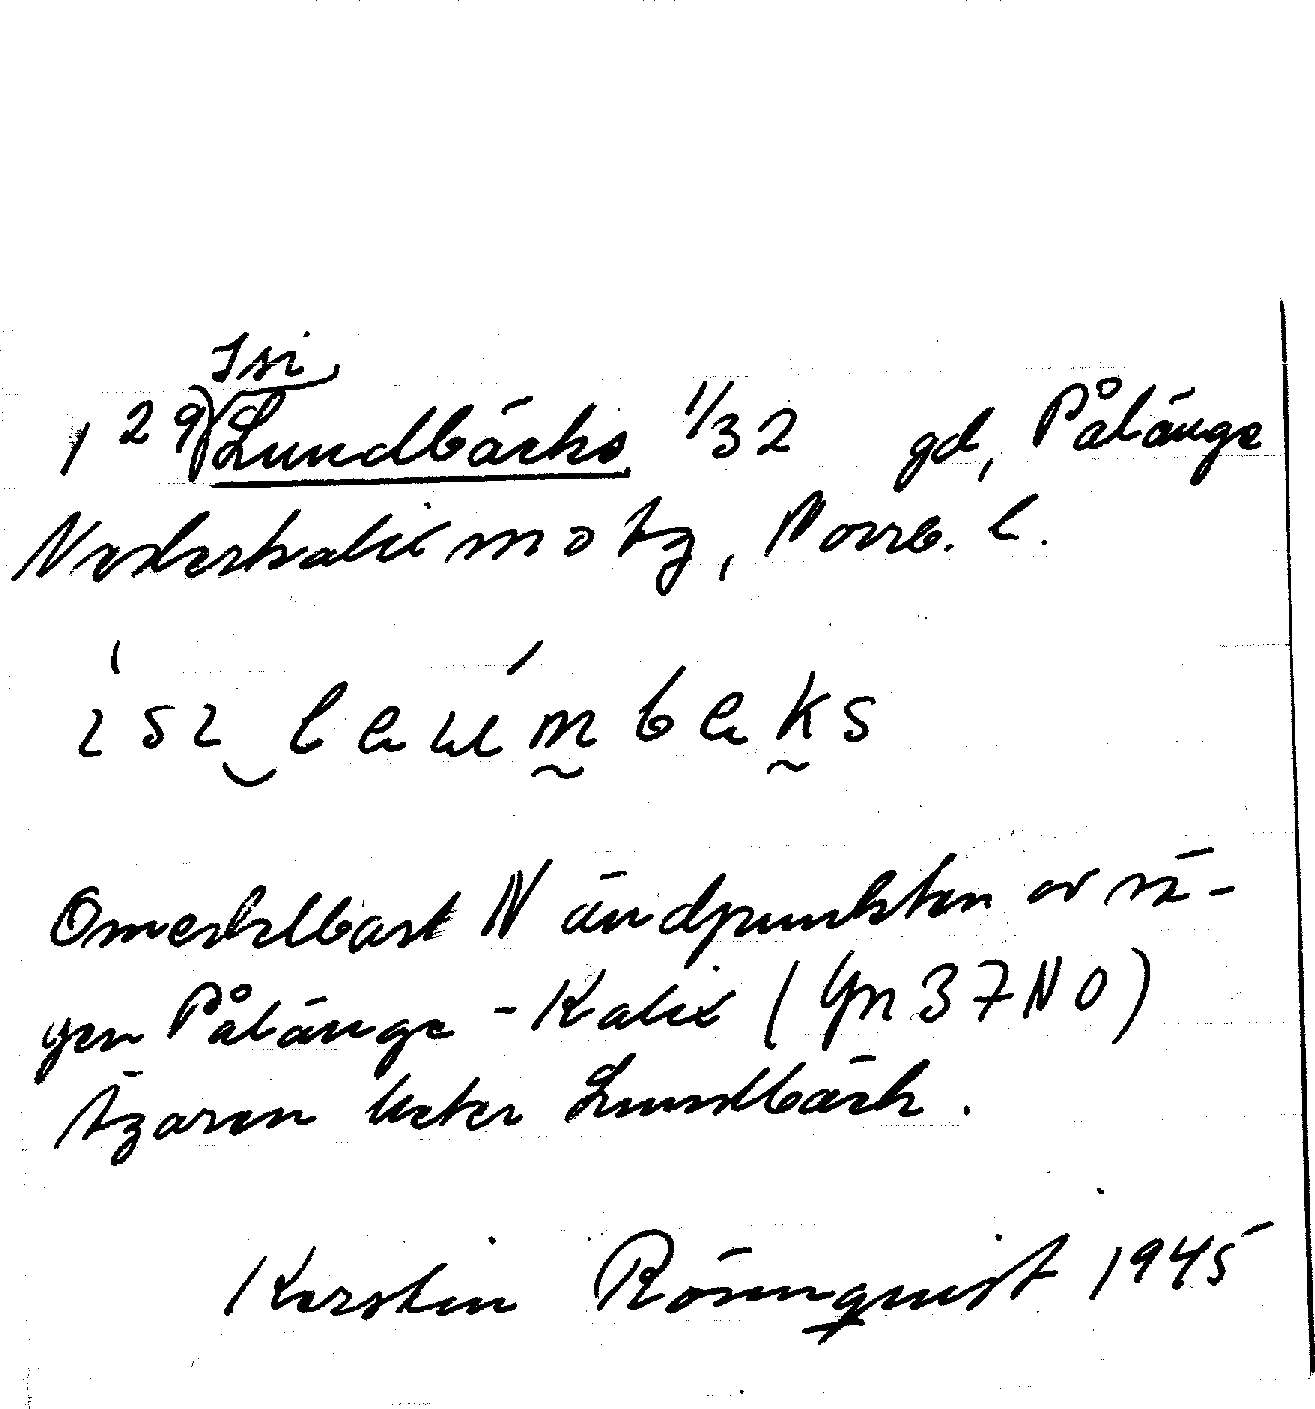 Isi
1 29) Lundbäcks 1/32 gd, Pålänge
Nederkalix sn o tg, Norrb. l.
Omedelbart N ändpunkten av vä-
gen Pålänge - Kalix (Gn 37 NO)
Ägaren heter Lundbäck.
Kerstin Rönnquist 1945